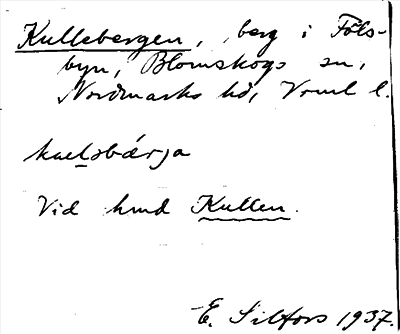 Kullebergen, berg i Föls-
byn, Blomskogs sn,
Nordmarks hd, Vrml l.
kuelsbárja
Vid hmd Kullen.
E. Silfors 1937.